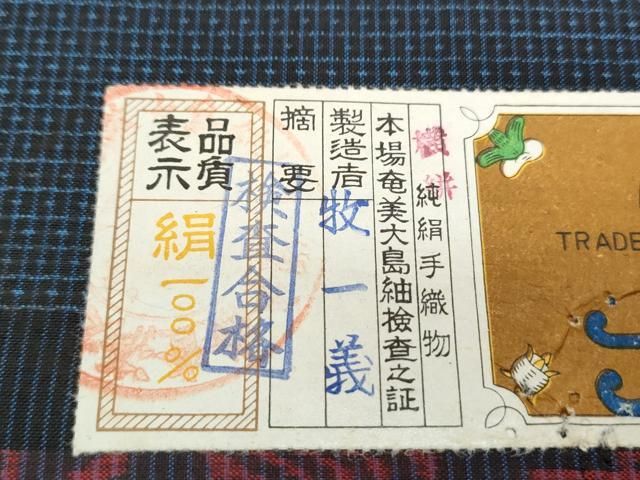 機絣
純絹手織物
本場奄美大島紬檢查之証
製造者 牧一義
摘要
品質
表示
絹一〇〇%
検査合格
TRADE